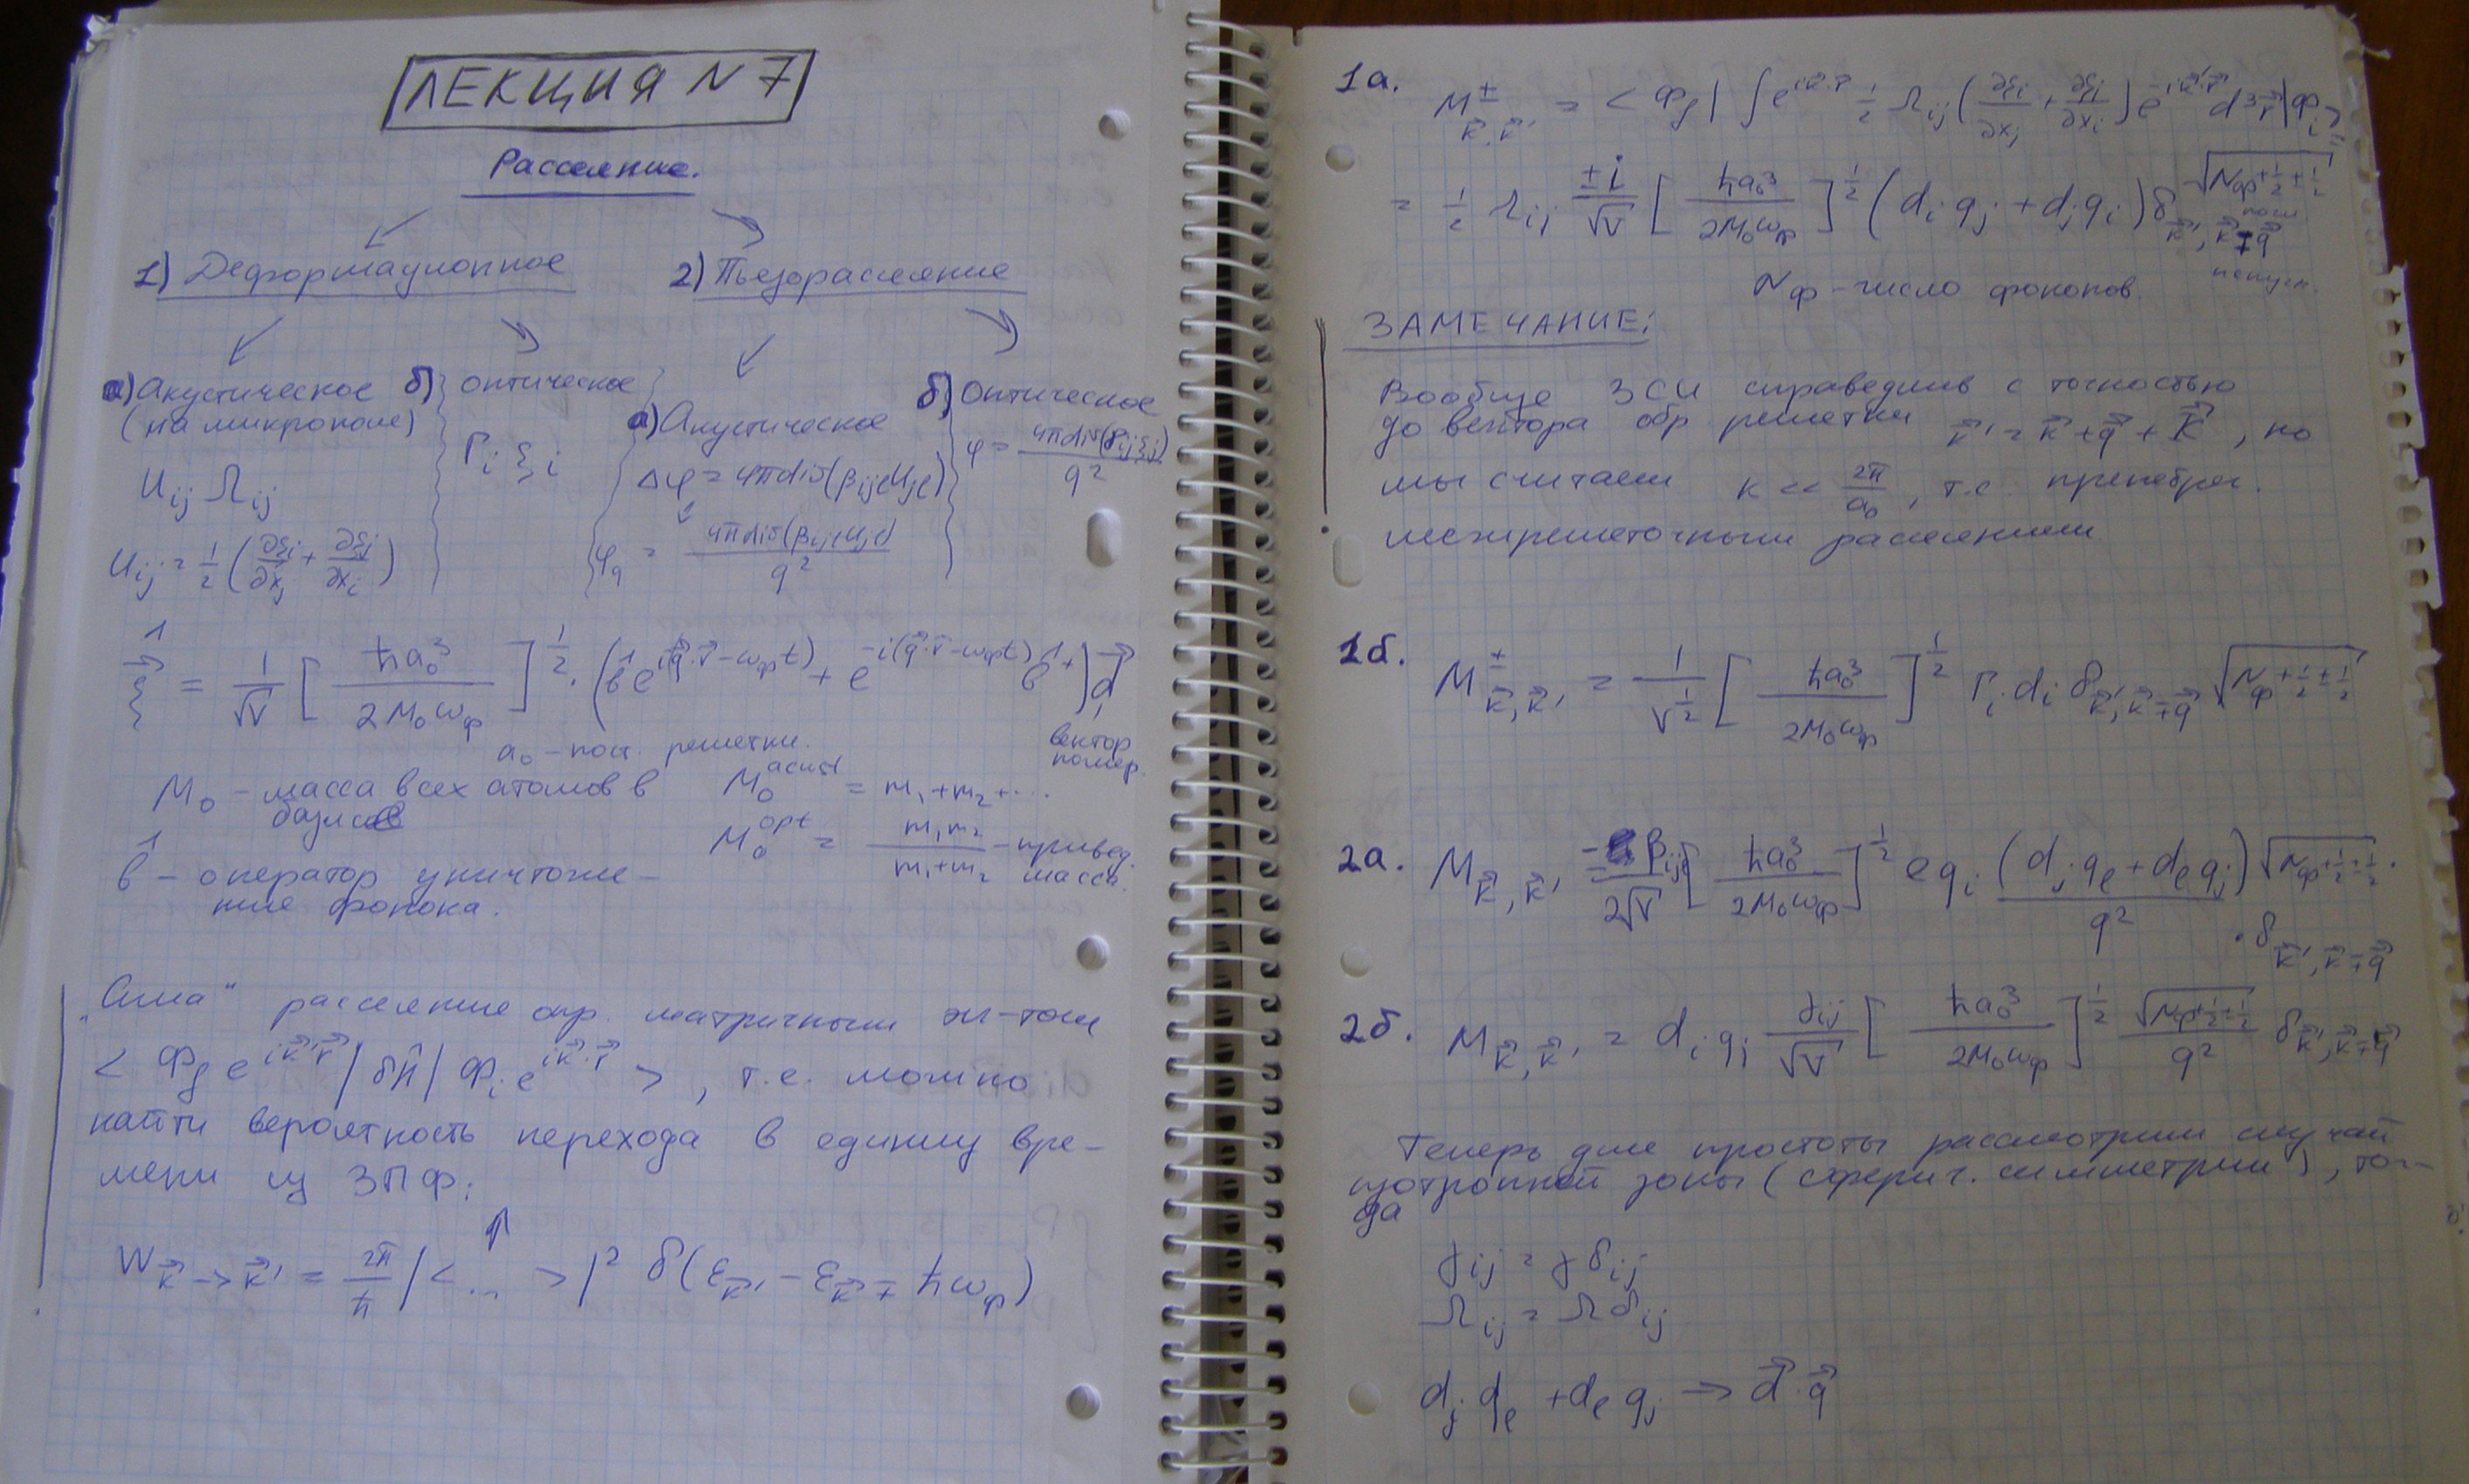 ЛЕКЦИЯ N 7
Рассеяние.
1) Деформационное
2) Пьезорассеяние
а) Акустическое
(на микрополе)
U_ij Λ_ij
U_ij = 1/2 (∂ξ_i/∂x_j + ∂ξ_j/∂x_i)
б) оптическое
Γ_i ξ_i
а) Акустическое
Δφ = 4π div(β_ijl U_jl)
φ_q = 4π div(β_ijl U_jl) / q²
б) Оптическое
φ = 4π div(γ_ij ξ_j) / q²
ξ⃗̂ = 1/√V [ħa₀³ / 2M₀ω_ф]^(1/2) · (b̂ e^(i(q⃗·r⃗ - ω_ф t)) + e^(-i(q⃗·r⃗ - ω_ф t)) b̂⁺) d⃗
a₀ - пост. решетки.
вектор
поляр.
M₀ - масса всех атомов в
базисе
M₀^acust = m₁ + m₂ + ...
M₀^opt = m₁m₂ / (m₁+m₂) - привед.
масса.
b̂ - оператор уничтоже-
ние фонона.
„Сила" рассеяние опр. матричным эл-том
< Φ_f e^(ik⃗'r⃗) | δĤ | Φ_i e^(ik⃗·r⃗) >, т.е. можно
найти вероятность перехода в единицу вре-
мени из ЗПФ:
W_k⃗→k⃗' = 2π/ħ |< ... >|² δ(ε_k⃗' - ε_k⃗ ∓ ħω_ф)
1а. M^±_k⃗,k⃗' = < Φ_f | ∫ e^(ik⃗·r⃗) 1/2 Λ_ij (∂ξ_i/∂x_j + ∂ξ_j/∂x_i) e^(-ik⃗'r⃗) d³r⃗ | Φ_i > =
= 1/2 Λ_ij ±i/√V [ħa₀³ / 2M₀ω_ф]^(1/2) (d_i q_j + d_j q_i) δ_k⃗',k⃗∓q⃗ √(N_ф + 1/2 ± 1/2)
N_ф - число фононов.
ЗАМЕЧАНИЕ:
Вообще ЗСИ справедлив с точностью
до вектора обр решетки k⃗' = k⃗ + q⃗ + K⃗, но
мы считаем k << 2π/a₀, т.е. пренебрег.
межрешеточными рассеянием
1б. M^±_k⃗,k⃗' = 1/V^(1/2) [ħa₀³ / 2M₀ω_ф]^(1/2) Γ_i d_i δ_k⃗',k⃗∓q⃗ √(N_ф + 1/2 ± 1/2)
2а. M_k⃗,k⃗' = -β_ijl / 2√V [ħa₀³ / 2M₀ω_ф]^(1/2) e q_i (d_j q_l + d_l q_j) / q² √(N_ф + 1/2 ± 1/2) ·
· δ_k⃗',k⃗∓q⃗
2б. M_k⃗,k⃗' = d_i q_j γ_ij/√V [ħa₀³ / 2M₀ω_ф]^(1/2) √(N_ф + 1/2 ± 1/2) / q² δ_k⃗',k⃗∓q⃗
Теперь для простоты рассмотрим случай
изотропной зоны (сферич. симметрии), тог-
да
γ_ij = γ δ_ij
Λ_ij = Λ δ_ij
d_j q_l + d_l q_j → d⃗·q⃗